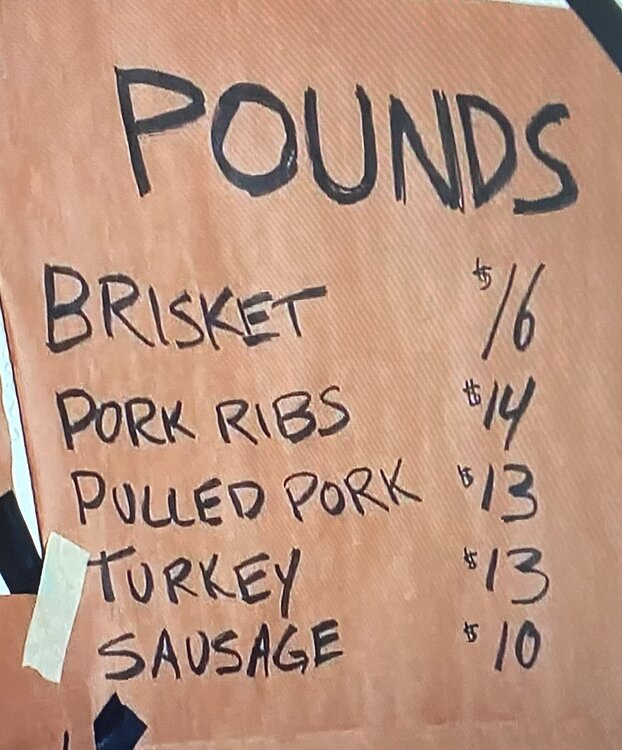 POUNDS
BRISKET $16
PORK RIBS $14
PULLED PORK $13
TURKEY $13
SAUSAGE $10